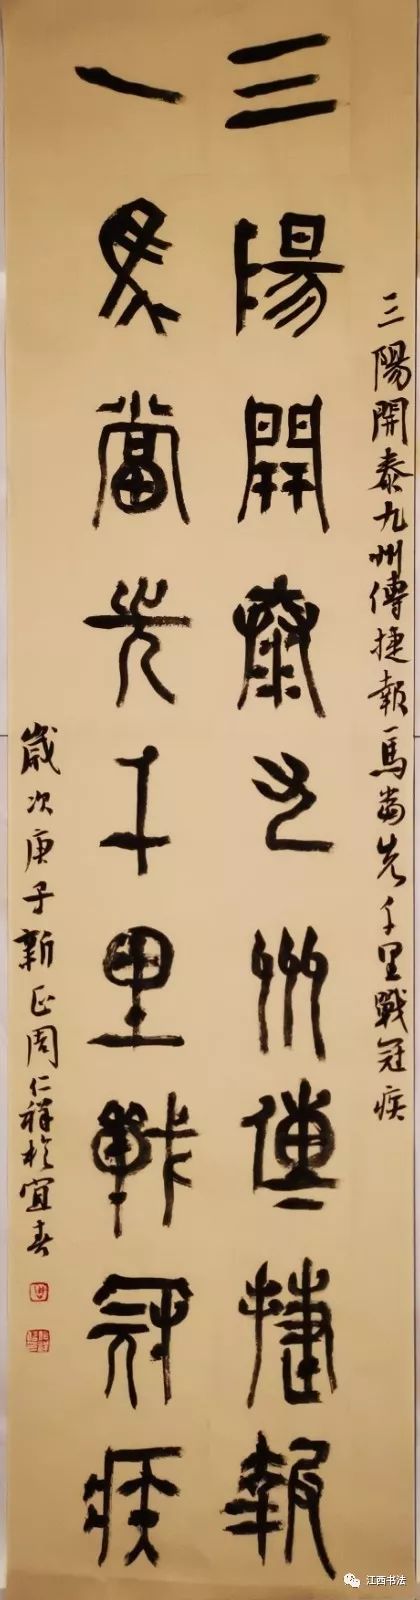 三陽開泰九州傳捷報一馬當先千里戰冠疾
三陽開泰九州傳捷報
一馬當先千里戰冠疾
歲次庚子新正周仁祥於宜春
江西书法